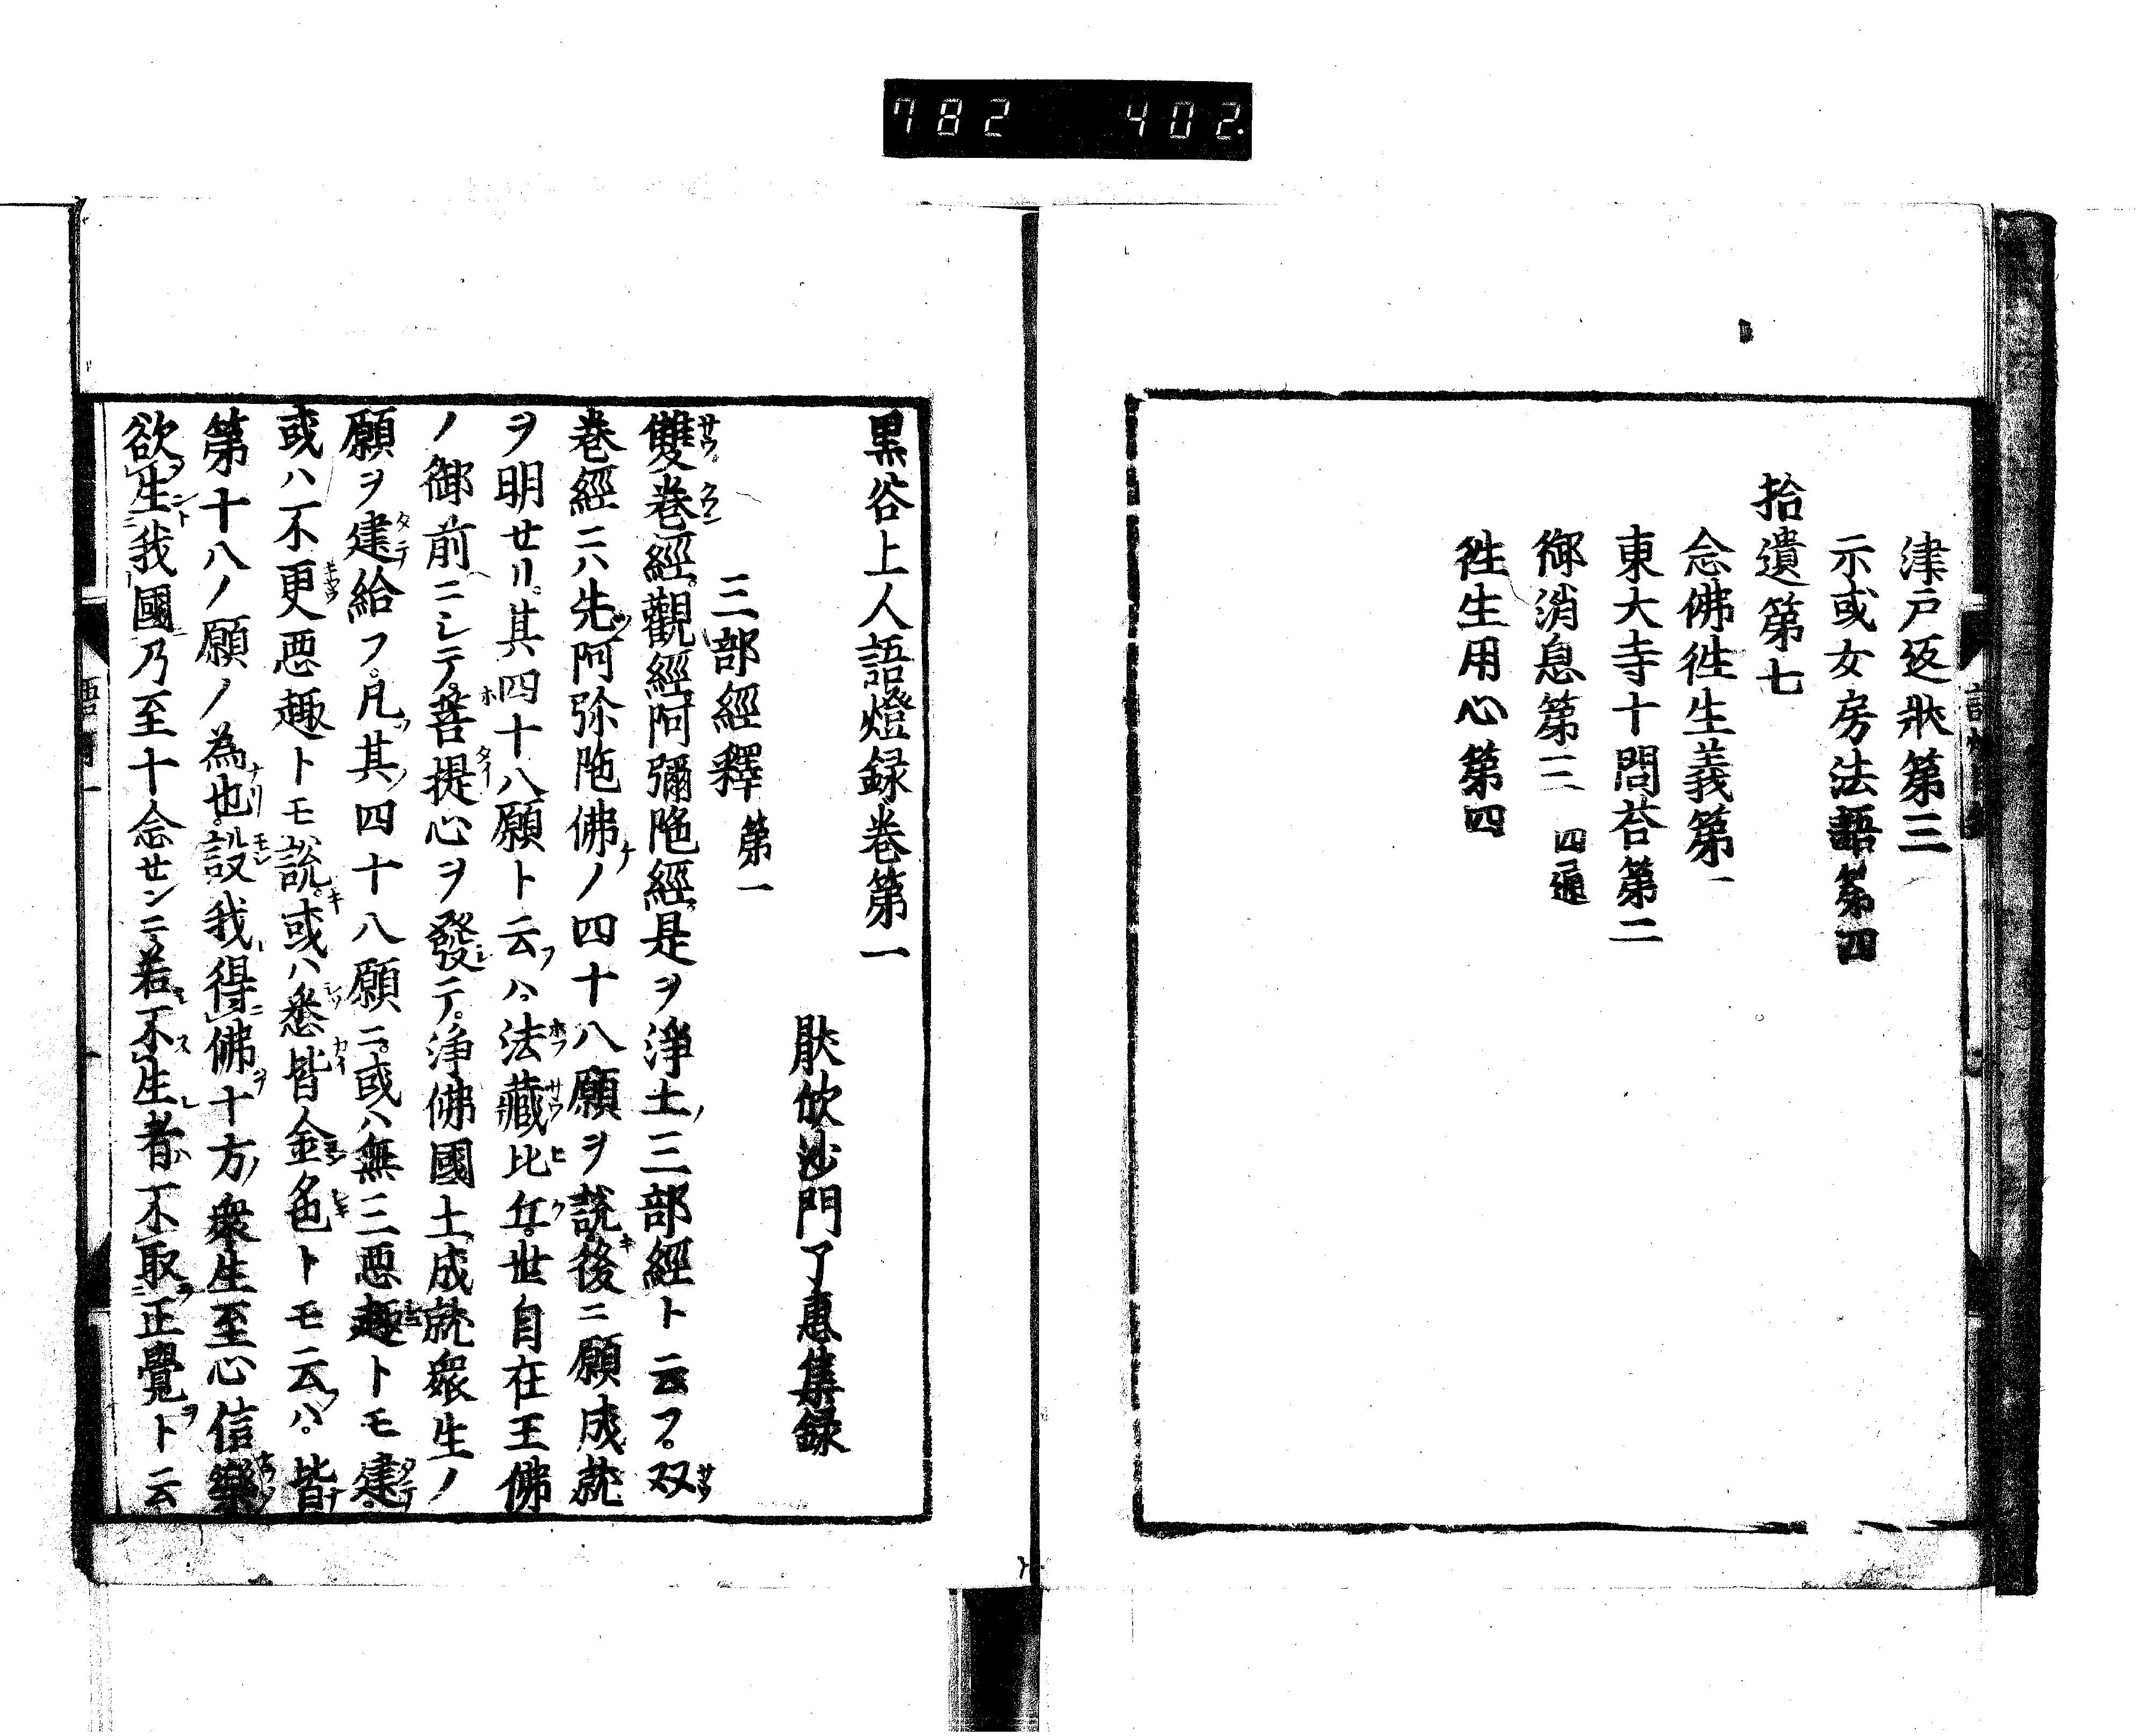 782 402
津戸返狀第三
示或女房法語第四
拾遺第七
念佛徃生義第一
東大寺十問荅第二
御消息第三 四通
徃生用心第四
黒谷上人語燈録卷第一
厭欣沙門了惠集録
三部經釋 第一
雙卷經。觀經。阿彌陁經。是ヲ浄土三部經ト云フ。双
卷經ニハ先阿弥陁佛ノ四十八願ヲ說後ニ願成就
ヲ明セリ。其四十八願ト云ハ、法藏比丘。世自在王佛
ノ御前ニシテ。菩提心ヲ發テ。浄佛國土成就衆生ノ
願ヲ建給フ。凡其四十八願ニ。或ハ無三惡趣トモ建。
或ハ不更惡趣トモ說。或ハ悉皆金色トモ云ハ。皆
第十八ノ願ノ為也。設我得佛十方衆生至心信樂
欲生我國乃至十念センニ若不生者不取正覺ト云